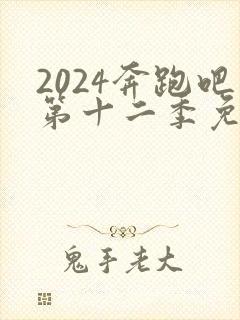 2024奔跑吧
第十二季免
鬼手老大